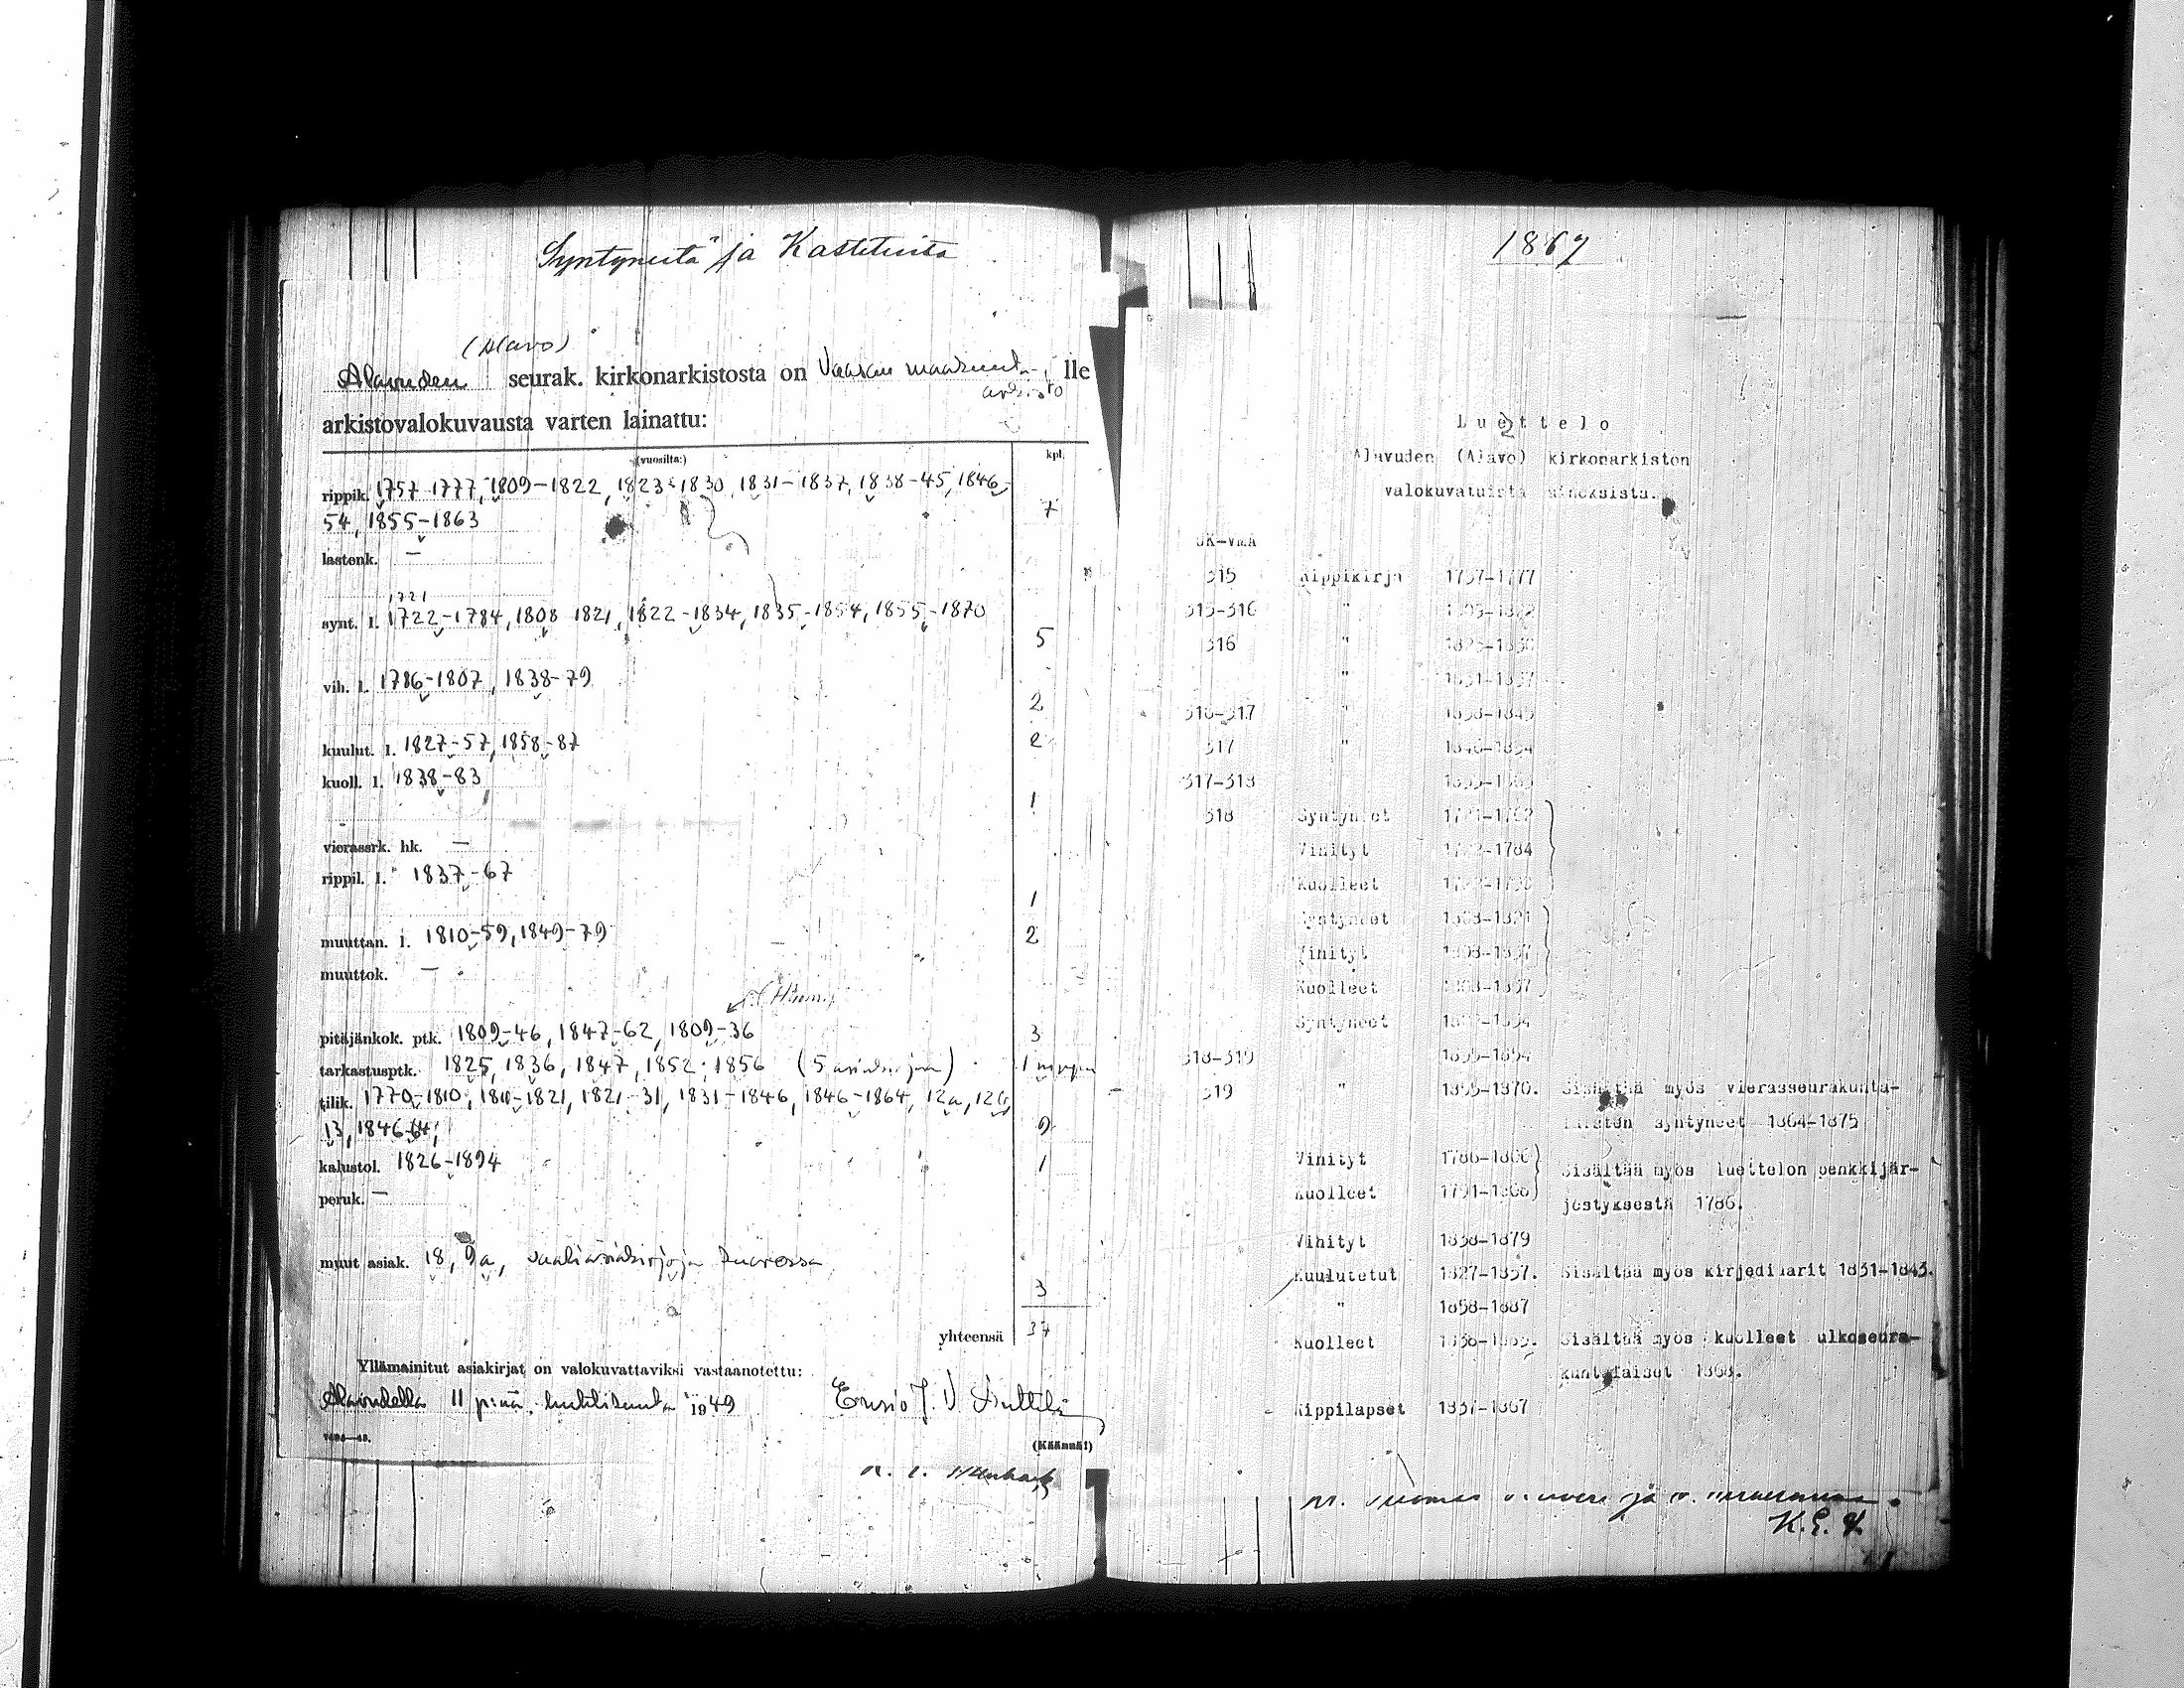 Syntyneitä ja Kastetuita
(Alavo)
Alavuden seurak. kirkonarkistosta on Vaasan maakunta-, lle
arkisto
arkistovalokuvausta varten lainattu:
(vuosilta:) kpl.
rippik. 1757-1777, 1809-1822, 1823-1830, 1831-1837, 1838-45, 1846,-
54, 1855-1863 7
lastenk. —
1721
synt. l. 1722-1784, 1808 1821, 1822-1834, 1835-1854, 1855-1870
5
vih. l. 1786-1807, 1838-79
2
kuulut. l. 1827-57, 1858-87 2
kuoll. l. 1838-83
1
vierassrk. hk. —
rippil. l. 1837-67
1
muuttan. l. 1810-59, 1849-79 2
muuttok. —
pitäjänkok. ptk. 1809-46, 1847-62, 1809-36 3
tarkastusptk. 1825, 1836, 1847, 1852, 1856 (5 asiakirjaa) 1 nippu
tilik. 1770-1810, 1810-1821, 1821-31, 1831-1846, 1846-1864, 12a, 12b,
13, 1846-64, 9
kalustol. 1826-1894 1
peruk. —
muut asiak. 18, 9a, vaaliasiakirjoja kuoressa
3
yhteensä 37
Yllämainitut asiakirjat on valokuvattaviksi vastaanotettu:
Alavudella 11 p:nä huhtikuuta 1949 Ensio J. V.
(Käännä!)
1867
Luettelo
Alavuden (Alavo) kirkonarkiston
valokuvatuista aineksista.
UK-VMA
315 Rippikirja 1757-1777
315-316 "
316 " 1823-1830
" 1831-1837
316-317 " 1838-1845
317 " 1846-1854
317-318 1855-1863
318 Syntyneet
Vihityt 1722-1784
Kuolleet
Syntyneet 1808-1821
Vihityt 1808-1837
Kuolleet 1808-1837
Syntyneet 1822-1834
318-319 1835-1854
319 " 1855-1870. Sisältää myös vierasseurakunta-
laisten syntyneet 1864-1875
Vihityt Sisältää myös luettelon penkkijär-
Kuolleet jestyksestä 1786.
Vihityt 1838-1879
Kuulutetut 1827-1857. Sisältää myös kirjediaarit 1831-1843.
" 1858-1887
Kuolleet 1838-1883. Sisältää myös kuolleet ulkoseura-
kuntalaiset 1868.
Rippilapset 1837-1867
K.E.